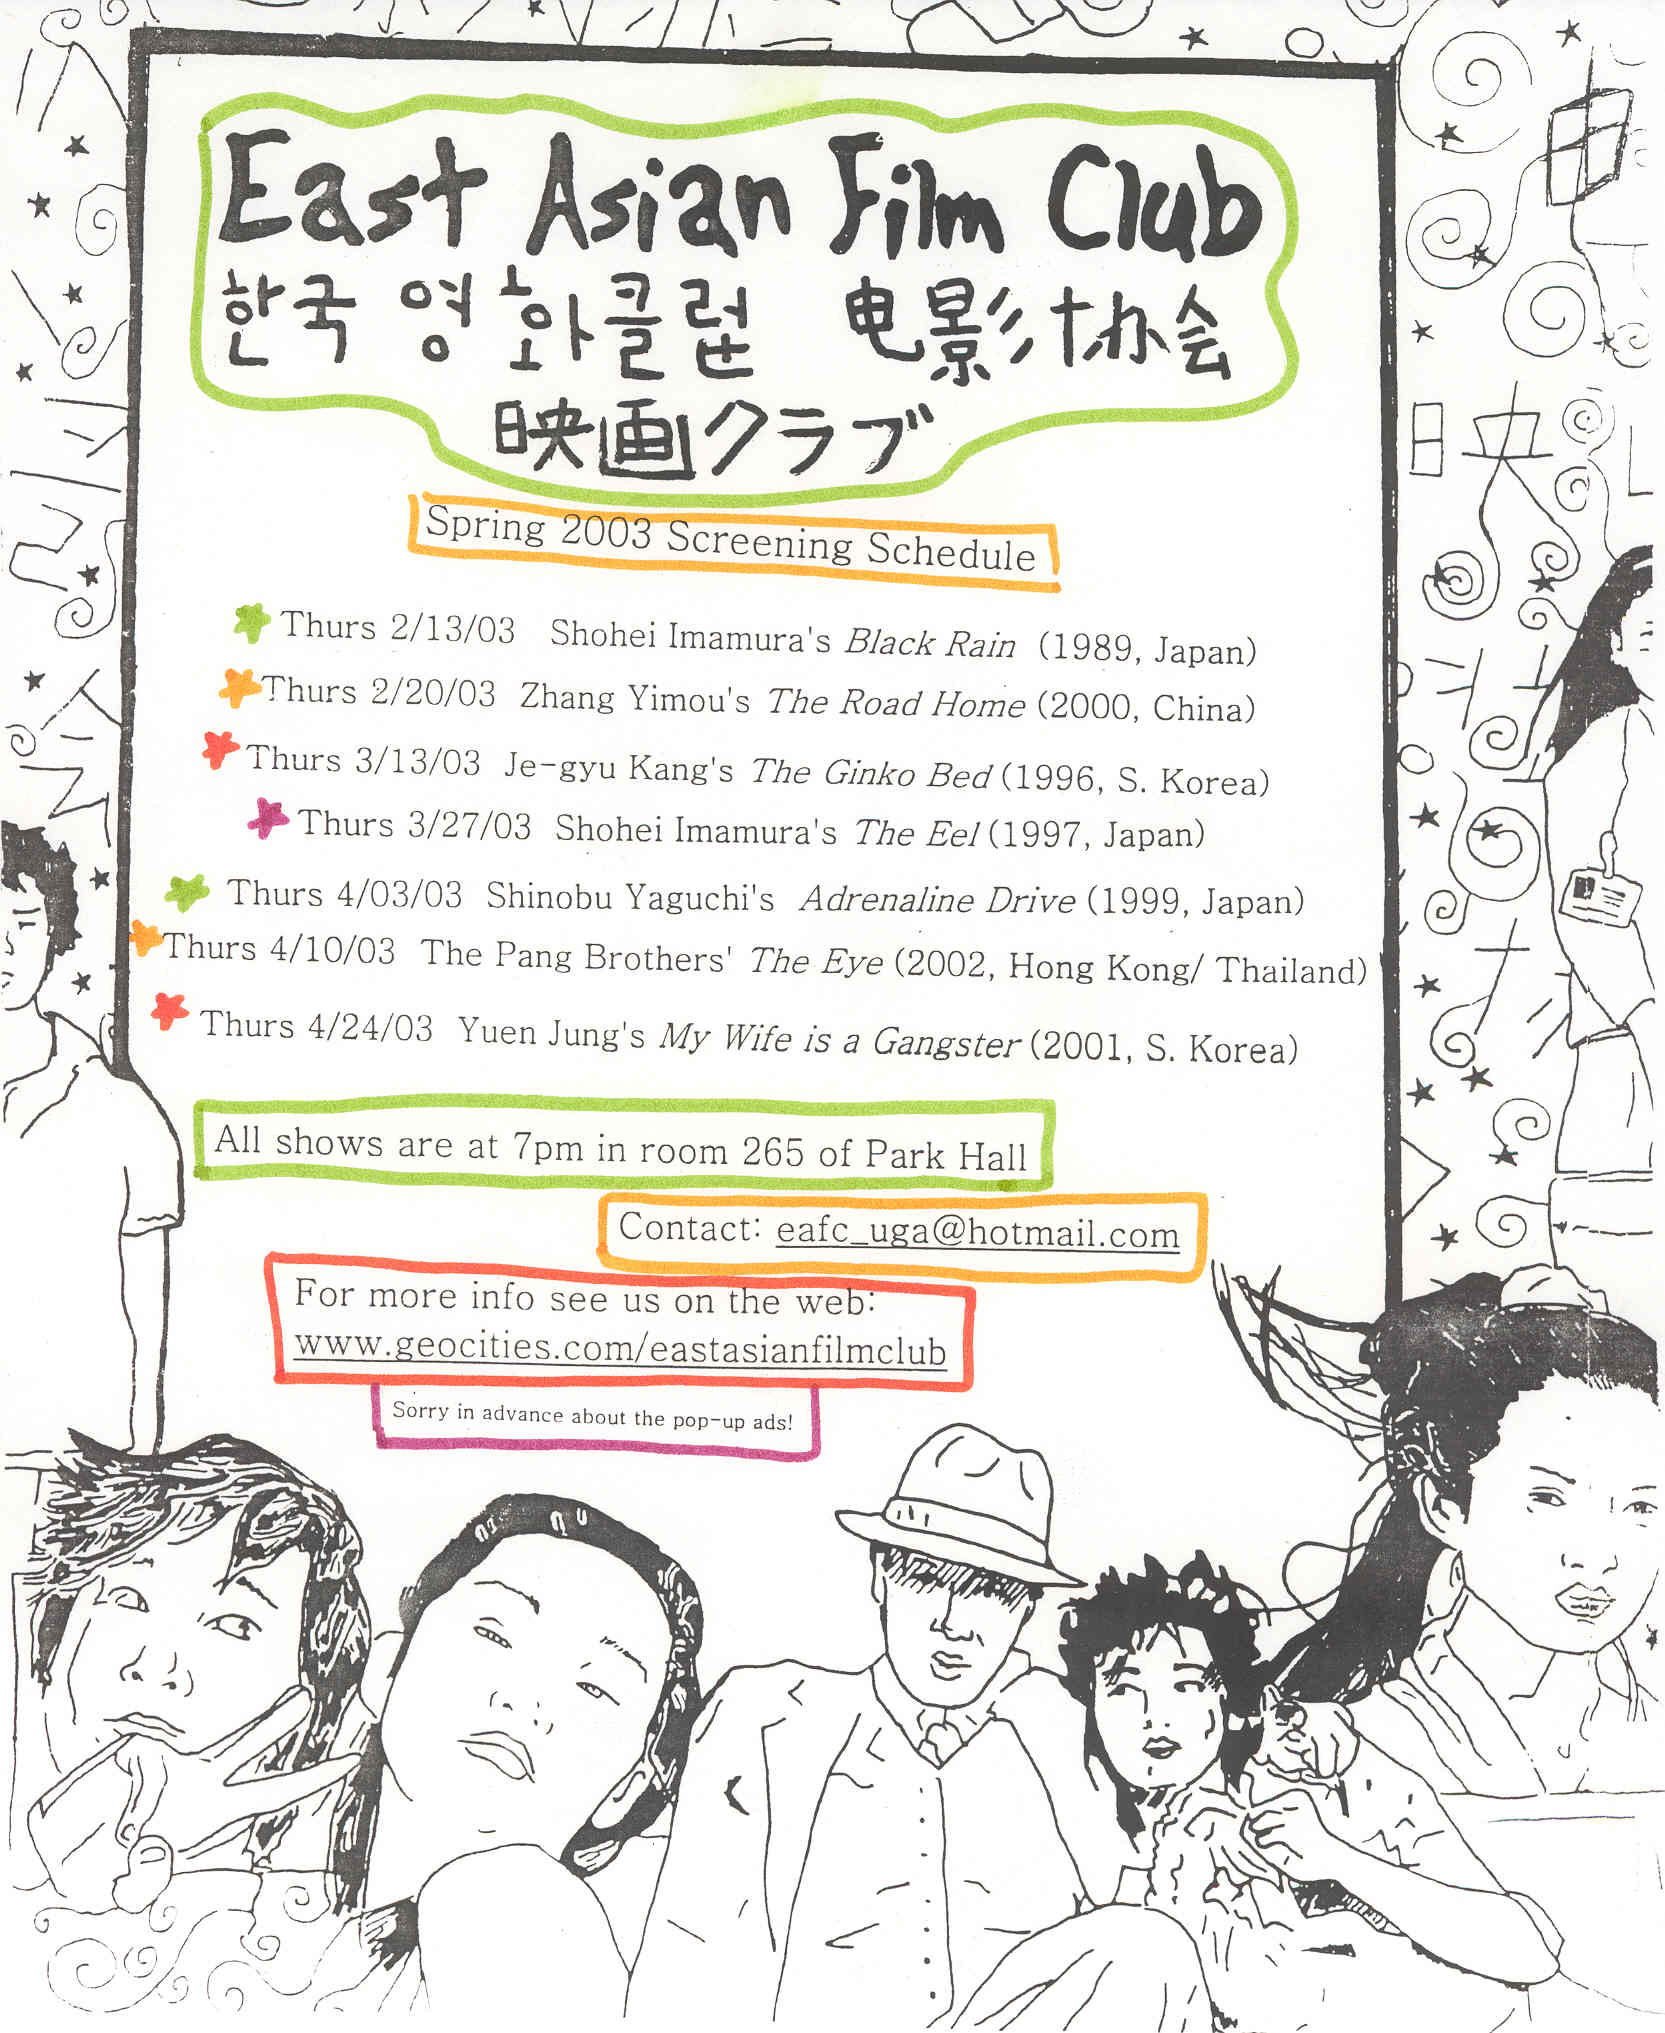 East Asian Film Club
한국 영화클럽 电影协会
映画クラブ
Spring 2003 Screening Schedule
Thurs 2/13/03 Shohei Imamura's Black Rain (1989, Japan)
Thurs 2/20/03 Zhang Yimou's The Road Home (2000, China)
Thurs 3/13/03 Je-gyu Kang's The Ginko Bed (1996, S. Korea)
Thurs 3/27/03 Shohei Imamura's The Eel (1997, Japan)
Thurs 4/03/03 Shinobu Yaguchi's Adrenaline Drive (1999, Japan)
Thurs 4/10/03 The Pang Brothers' The Eye (2002, Hong Kong/ Thailand)
Thurs 4/24/03 Yuen Jung's My Wife is a Gangster (2001, S. Korea)
All shows are at 7pm in room 265 of Park Hall
Contact: eafc_uga@hotmail.com
For more info see us on the web:
www.geocities.com/eastasianfilmclub
Sorry in advance about the pop-up ads!